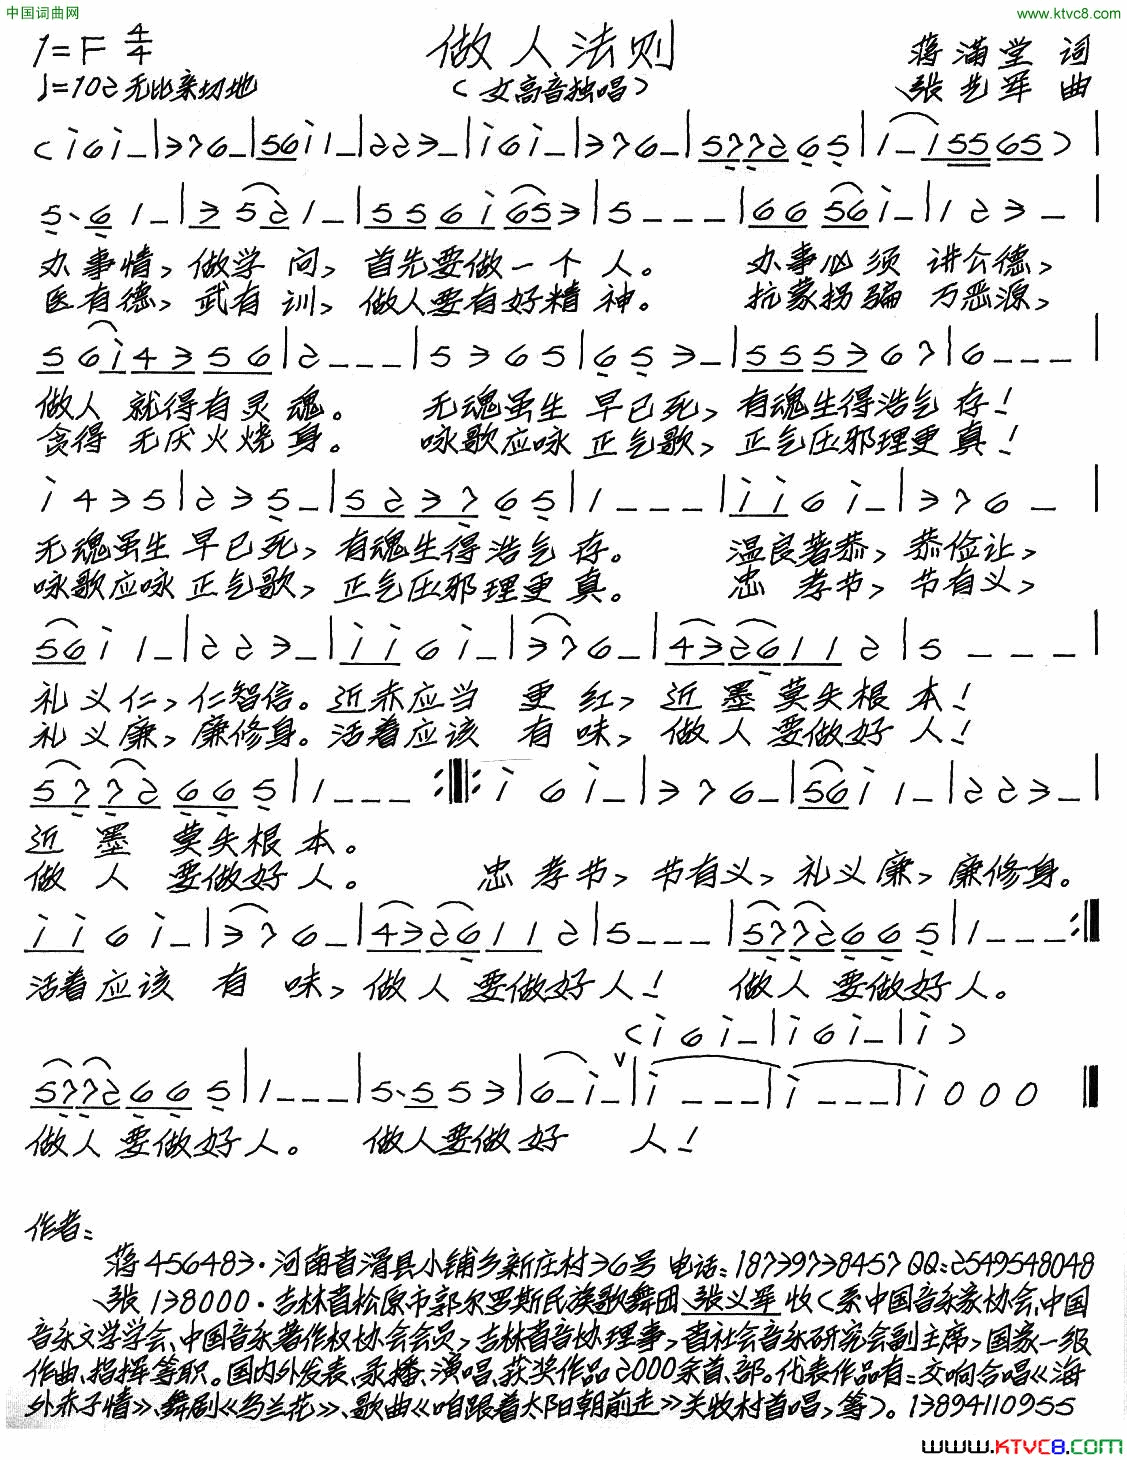 中国词曲网
www.ktvc8.com
1=F 4/4
做人法则
蒋满堂 词
♩=102 无比亲切地
(女高音独唱)
张艺军 曲
(i 6 i -|3 7 6 -|5 6 i 1 -|2 2 3 -|i 6 i -|3 7 6 -|5 7 7 2 6 5|1 - 1 5 5 6 5)|
5· 6 1 -|3 5 2 1 -|5 5 6 i 6 5 3|5 - - -|6 6 5 6 i -|1 2 3 -|
办事情,做学问,首先要做一个人。 办事必须讲公德,
医有德,武有训,做人要有好精神。 抗蒙拐骗万恶源,
5 6 i 4 3 5 6|2 - - -|5 3 6 5|6 5 3 -|5 5 5 3 6 7|6 - - -|
做人就得有灵魂。 无魂虽生早已死,有魂生得浩气存!
贪得无厌火烧身。 咏歌应咏正气歌,正气压邪理更真!
i 4 3 5|2 3 5 -|5 2 3 7 6 5|1 - - -|i i 6 i -|3 7 6 -|
无魂虽生早已死,有魂生得浩气存。 温良著恭,恭俭让,
咏歌应咏正气歌,正气压邪理更真。 忠孝节,节有义,
5 6 i 1 -|2 2 3 -|i i 6 i -|3 7 6 -|4 3 2 6 1 1 2|5 - - -|
礼义仁,仁智信。近赤应当更红,近墨莫失根本!
礼义廉,廉修身。活着应该有味,做人要做好人!
5 7 7 2 6 6 5|1 - - - :||: i 6 i -|3 7 6 -|5 6 i 1 -|2 2 3 -|
近墨莫失根本。
做人要做好人。 忠孝节,节有义,礼义廉,廉修身。
i i 6 i -|3 7 6 -|4 3 2 6 1 1 2|5 - - -|5 7 7 2 6 6 5|1 - - - :||
活着应该有味,做人要做好人! 做人要做好人。
(i 6 i -|i 6 i -|i)
5 7 7 2 6 6 5|1 - - -|5· 5 5 3|6 - i -|i - - -|i - - -|i 0 0 0||
做人要做好人。 做人要做好人!
作者:
蒋456483·河南省滑县小铺乡新庄村36号 电话:18739738457 QQ:2549548048
张138000·吉林省松原市郭尔罗斯民族歌舞团、张义军收(系中国音乐家协会、中国
音乐文学学会、中国音乐著作权协会会员,吉林省音协理事,省社会音乐研究会副主席,国家一级
作曲、指挥等职。国内外发表、录播、演唱、获奖作品2000余首、部。代表作品有:交响合唱《海
外赤子情》、舞剧《乌兰花》、歌曲《咱跟着太阳朝前走》关牧村首唱,等)。13894110955
www.KTVC8.com